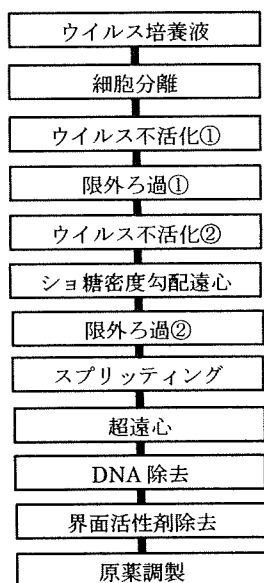 ウイルス培養液
細胞分離
ウイルス不活化①
限外ろ過①
ウイルス不活化②
ショ糖密度勾配遠心
限外ろ過②
スプリッティング
超遠心
DNA 除去
界面活性剤除去
原薬調製